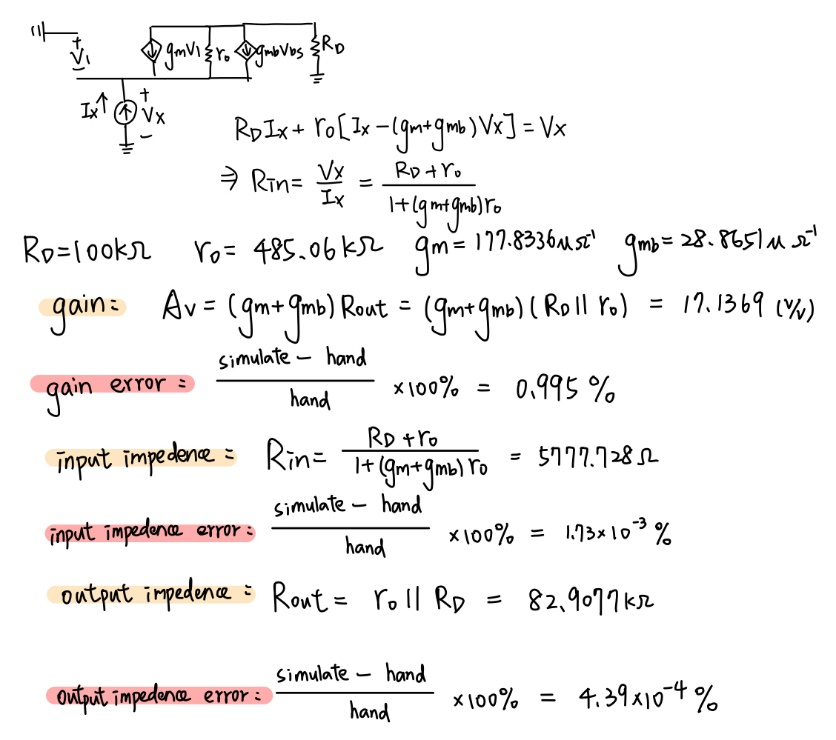 +
V1
−
gmV1
ro
gmbVbs
RD
Ix↑
+
Vx
−
RDIx + ro[Ix−(gm+gmb)Vx] = Vx
⇒ Rin = Vx/Ix = (RD+ro)/(1+(gm+gmb)ro)
RD=100kΩ ro= 485.06kΩ gm= 177.8336μΩ⁻¹ gmb= 28.8651μΩ⁻¹
gain: Av = (gm+gmb) Rout = (gm+gmb)(RD || ro) = 17.1369 (V/V)
gain error = (simulate − hand)/hand ×100% = 0.995%
input impedence = Rin= (RD+ro)/(1+(gm+gmb)ro) = 5777.728Ω
input impedence error = (simulate − hand)/hand ×100% = 1.73×10⁻³ %
output impedence = Rout = ro || RD = 82.9077kΩ
output impedence error = (simulate − hand)/hand ×100% = 4.39×10⁻⁴ %